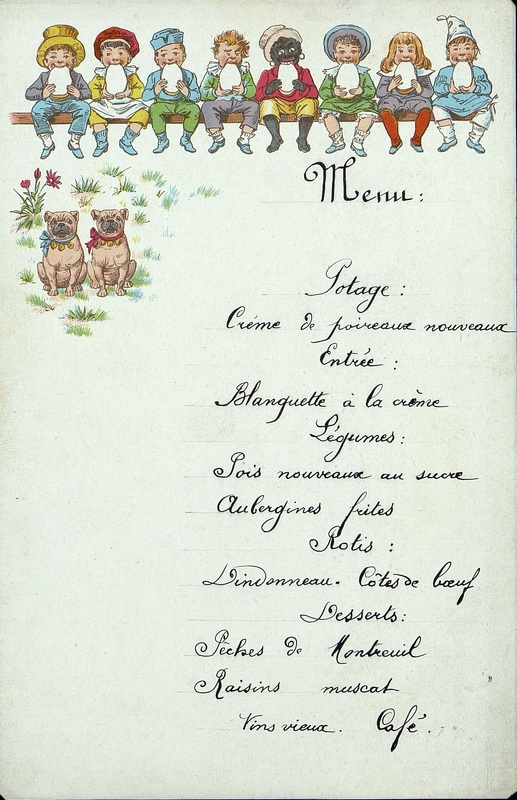 Menu:
Potage :
Créme de poireaux nouveaux
Entrée :
Blanquette à la crème
Légumes:
Pois nouveaux au sucre
Aubergines frites
Rotis :
Dindonneau. Côtes de bœuf
Desserts:
Pêches de Montreuil
Raisins muscat
Vins vieux. Café.